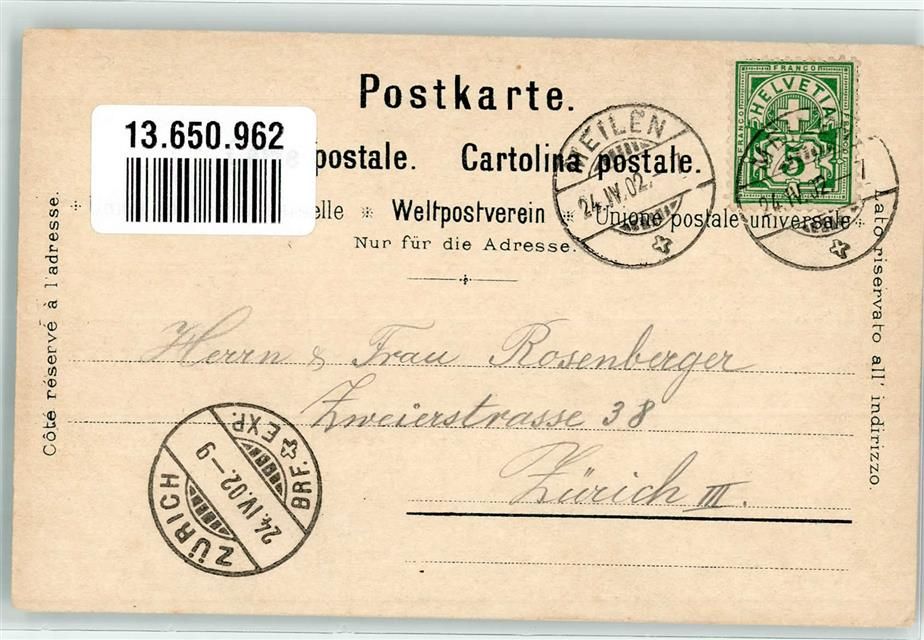 Postkarte.
13.650.962
postale. Cartolina postale.
elle * Weltpostverein * Unione postale universale
Nur für die Adresse.
Côté réservé à l'adresse.
Lato riservato all' indirizzo.
FRANCO
HELVETIA
FRANCO
FRANCO
5
MEILEN
24.IV.02.
24.IV.02
Herrn & Frau Rosenberger
Zweierstrasse 38
Zürich III.
ZÜRICH
24.IV.02.-9
BRF. EXP.